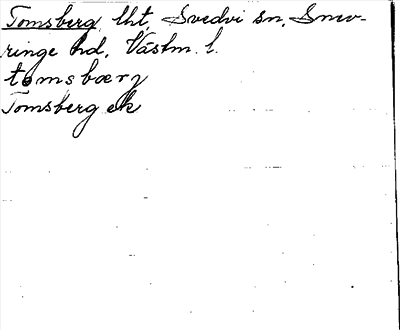 Tomsberg, lht, Svedvi sn, Snev-
ringe hd, Västm. l.
tomsbærj
Tomsberg ek